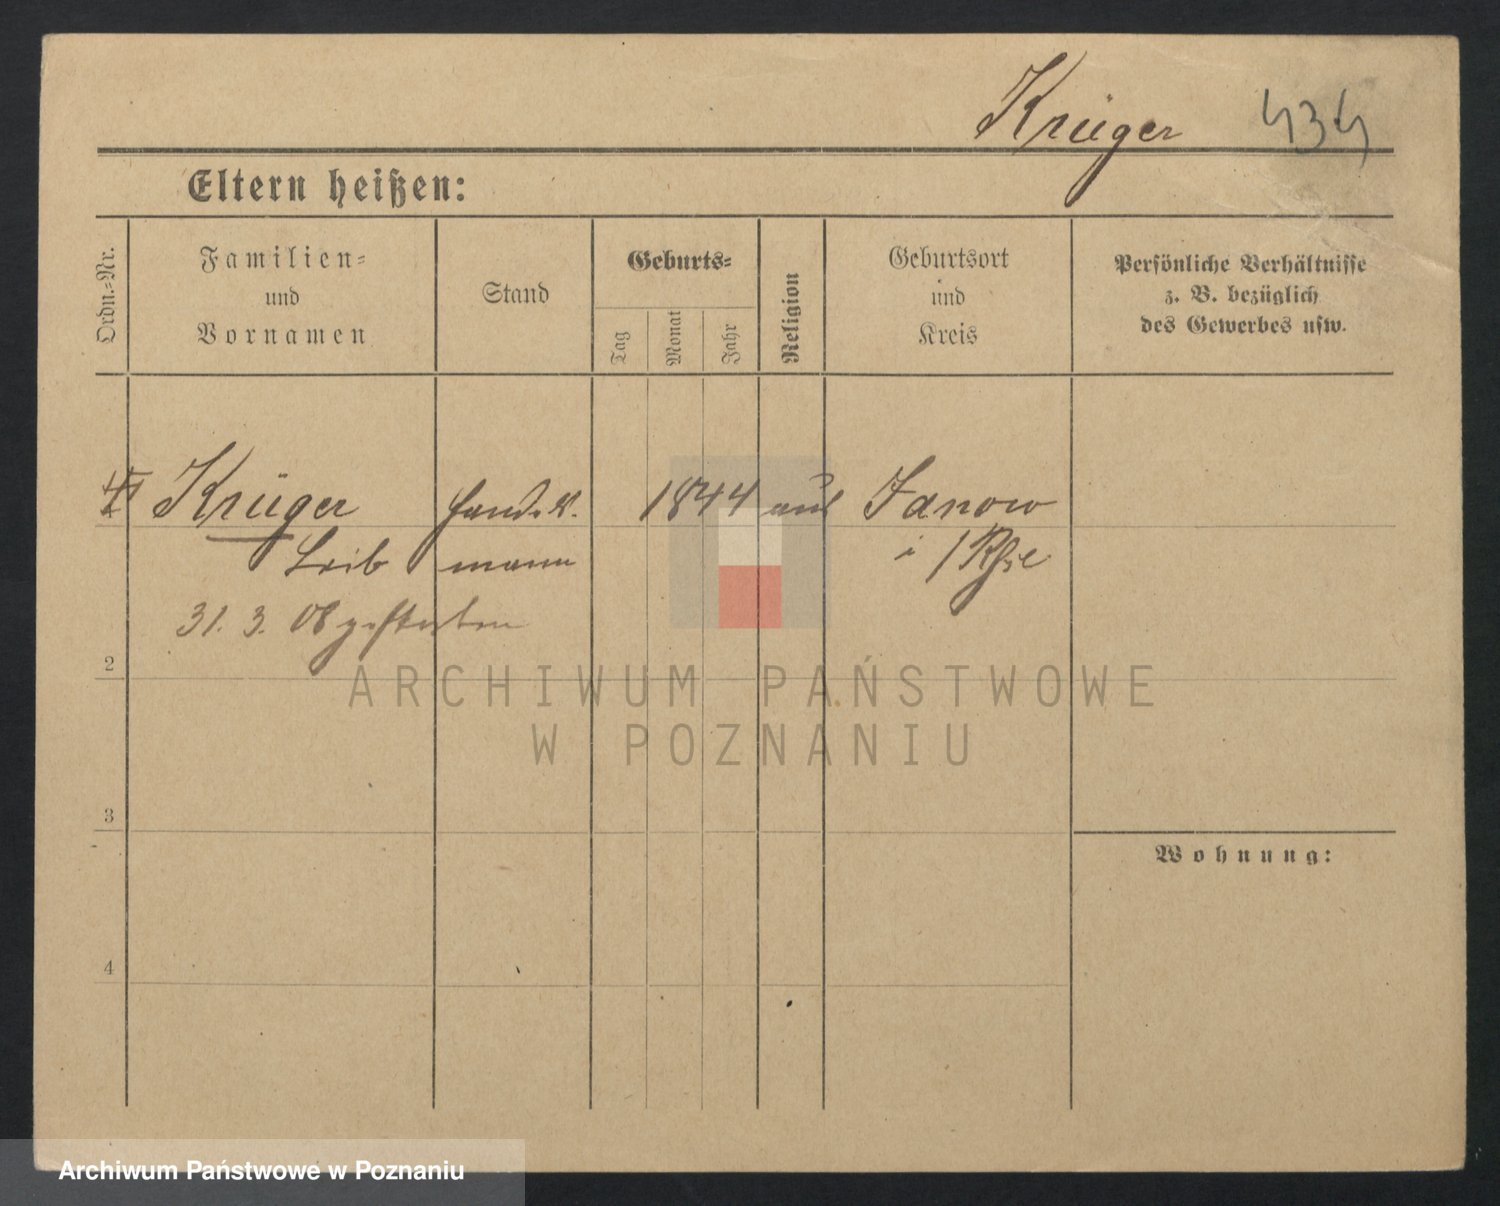 Krüger 434
Eltern heißen:
Ordn.-Nr.
Familien-
und
Vornamen
Stand
Geburts-
Tag
Monat
Jahr
Religion
Geburtsort
und
Kreis
Persönliche Verhältnisse
z. B. bezüglich
des Gewerbes usw.
1 Krüger 1844 Janow
Leib mann i/
31. 3. 08 gestorben
2
3
4
Wohnung:
ARCHIWUM PAŃSTWOWE
W POZNANIU
Archiwum Państwowe w Poznaniu